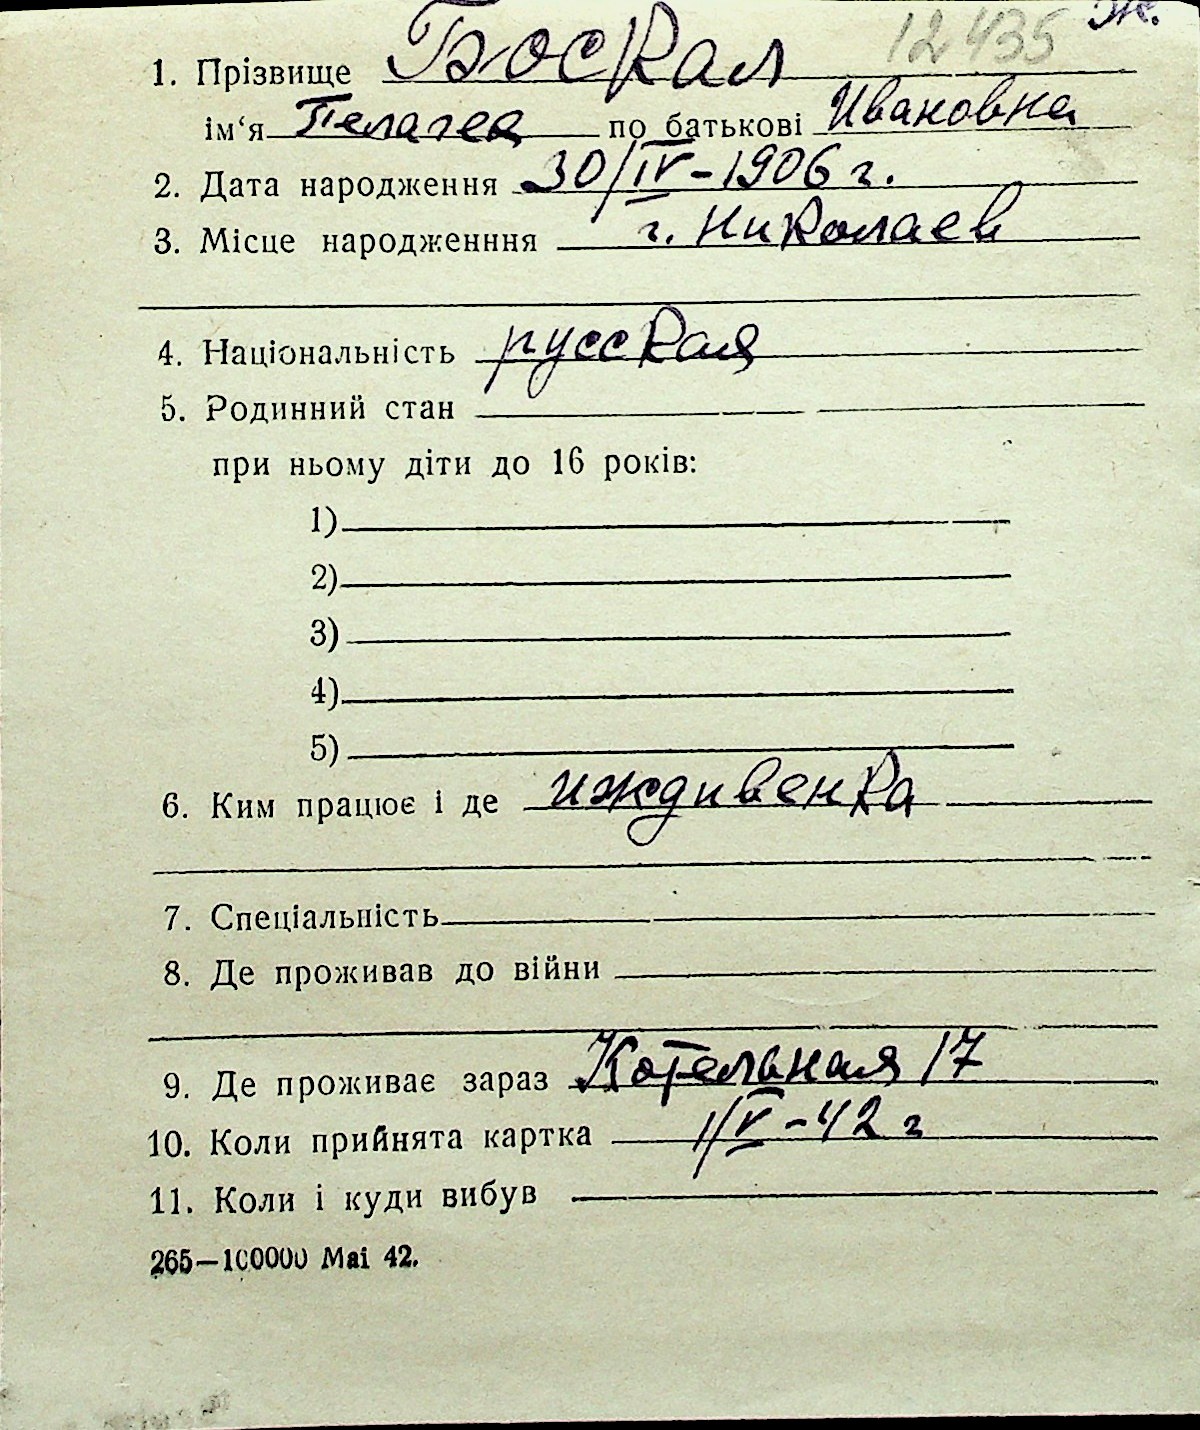 12435 Ж.
1. Прізвище Боскал
ім‘я Пелагея по батькові Ивановна
2. Дата народження 30/IV-1906 г.
3. Місце народженння г. Николаев
4. Національність русская
5. Родинний стан
при ньому діти до 16 років:
1)
2)
3)
4)
5)
6. Ким працює і де иждивенка
7. Спеціальність
8. Де проживав до війни
9. Де проживає зараз Котельная 17
10. Коли прийнята картка 1/V-42 г
11. Коли і куди вибув
265—100000 Mai 42.